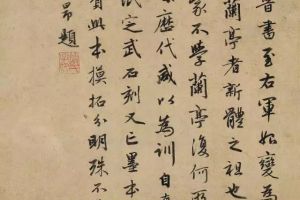 書至右軍始變為
蘭亭者新體之祖也
家不學蘭亭復何
歷代咸以為訓自
定武石刻又已墨本
此本摸拓分明殊不
昂題